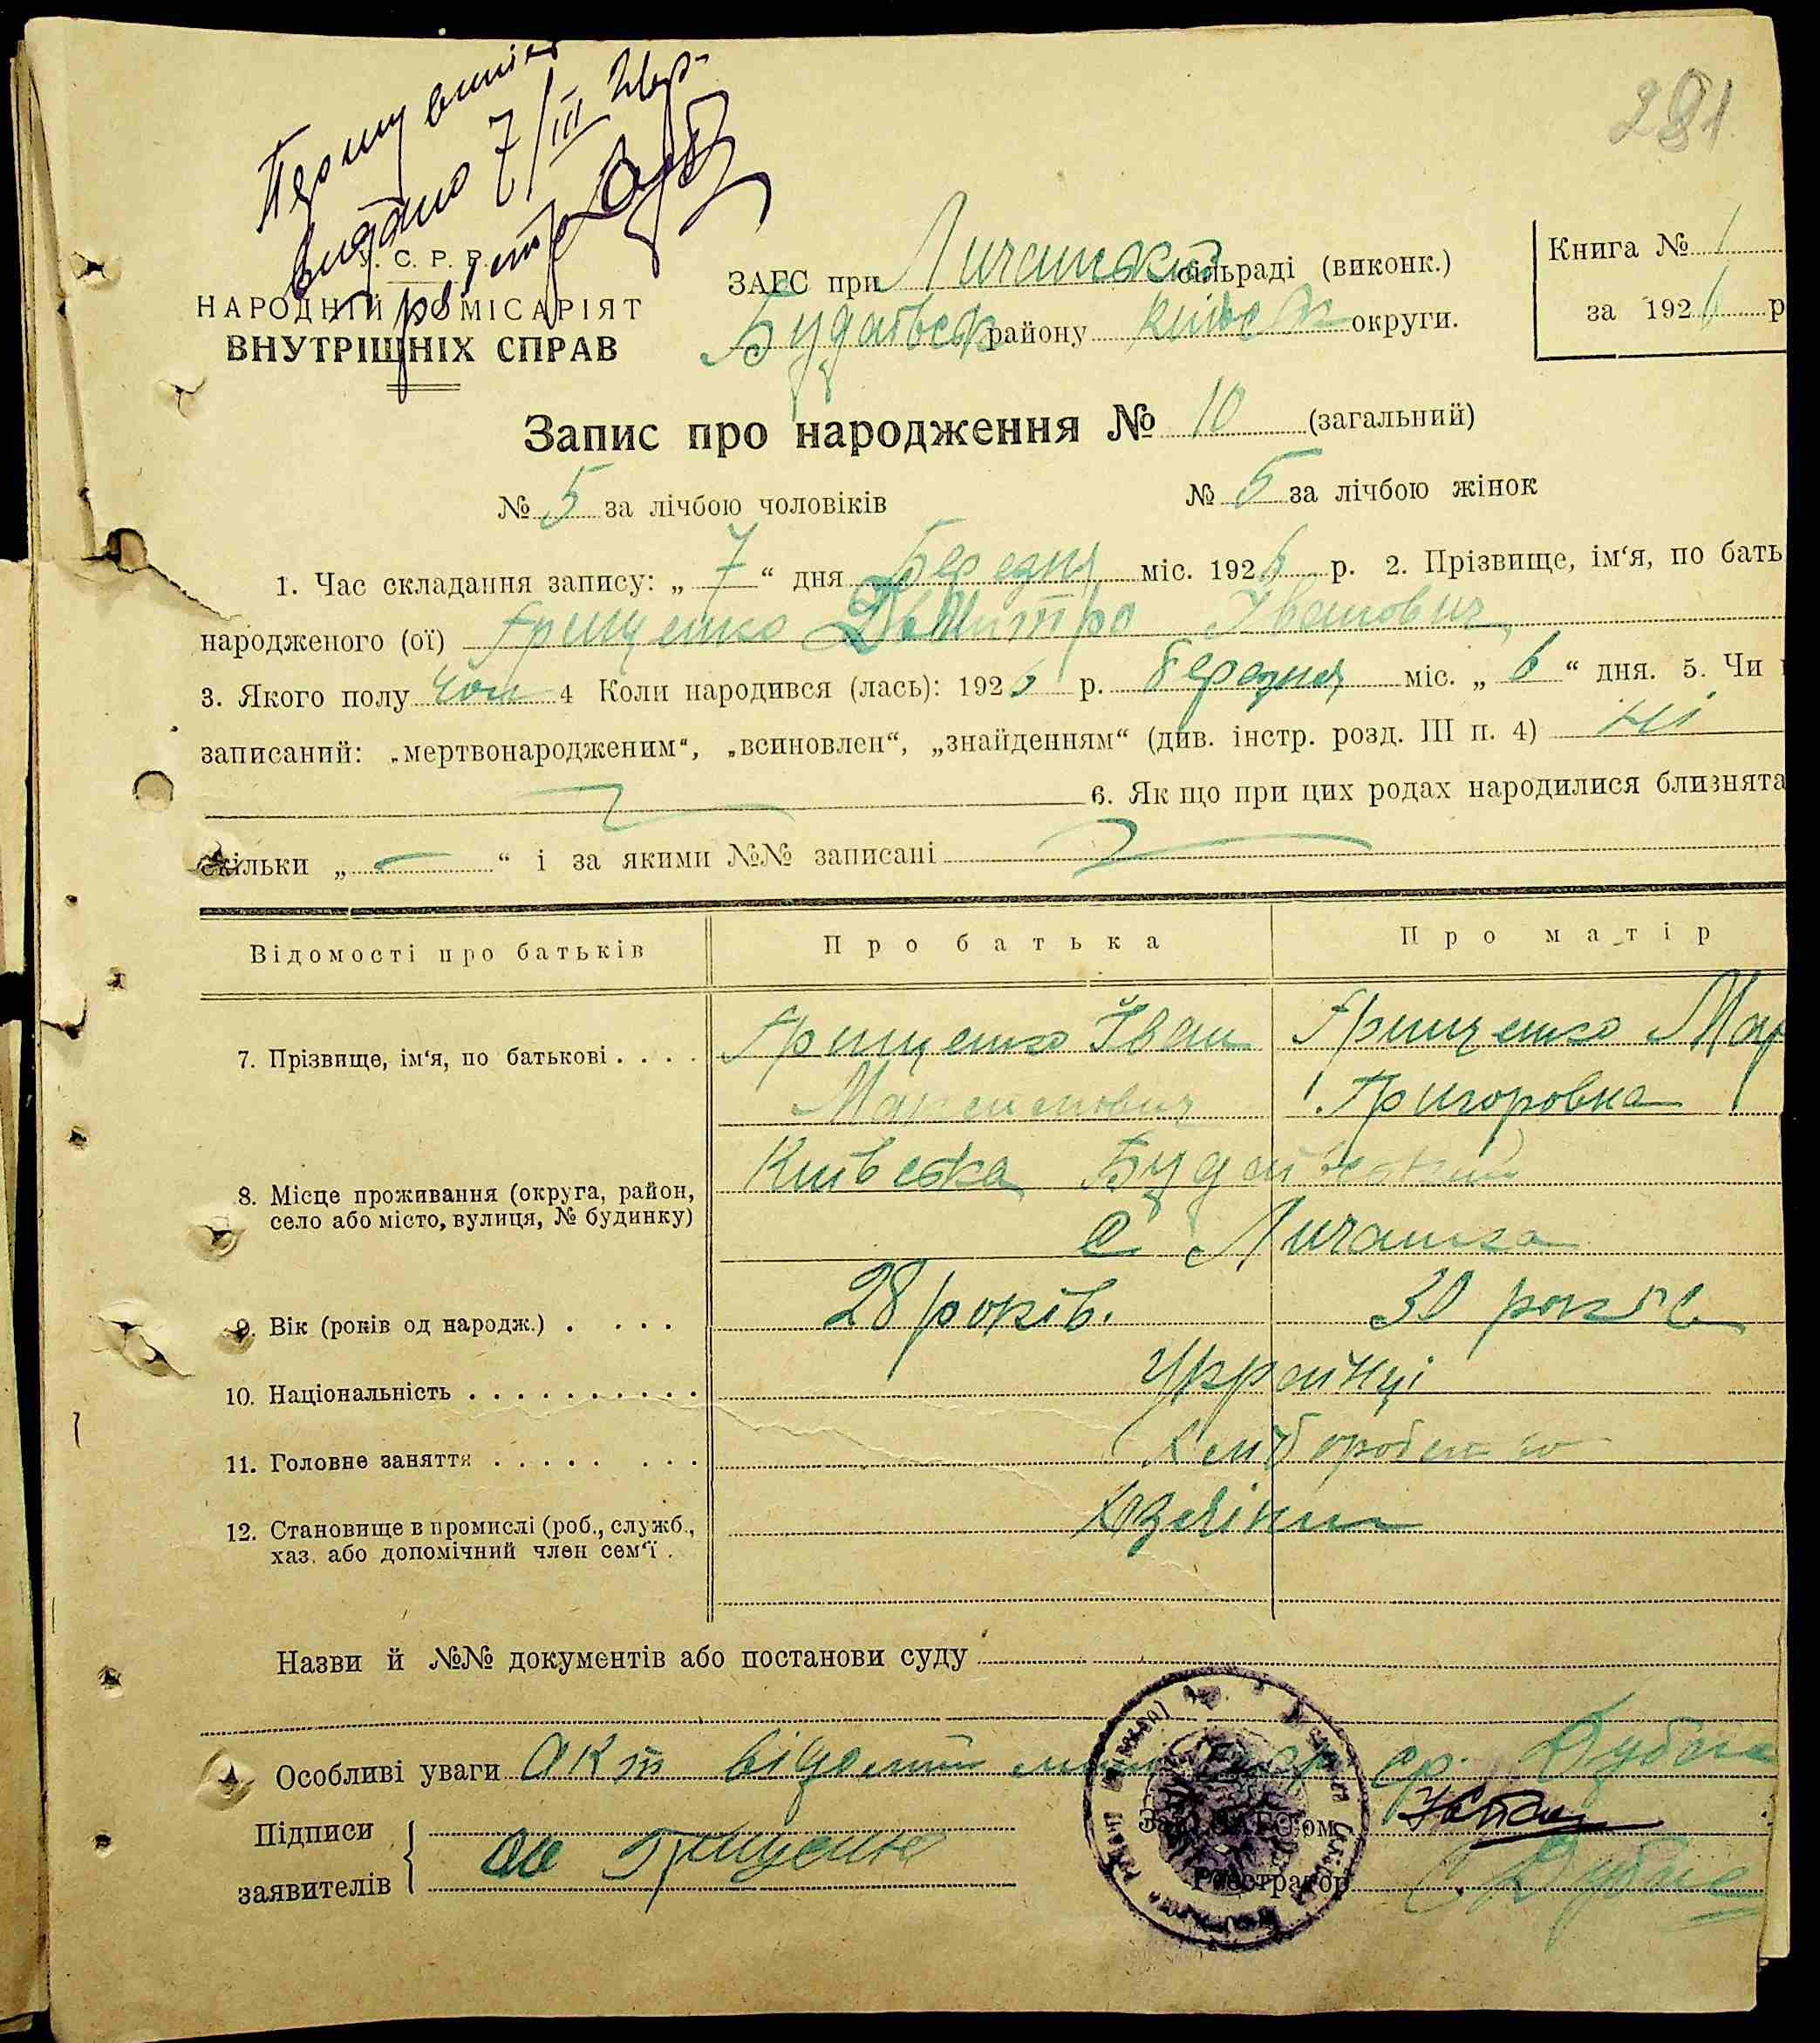 Першу випис
видано 7/III 26 р.
281
У. С. Р. Р.
НАРОДНІЙ КОМІСАРІЯТ
ВНУТРІШНІХ СПРАВ
ЗАГС при Личанській сільраді (виконк.)
Будаївськ району Київськ округи.
Книга № 1
за 1926 р
Запис про народження № 10 (загальний)
№ 5 за лічбою чоловіків № 5 за лічбою жінок
1. Час складання запису: „ 7 “ дня Березня міс. 1926 р. 2. Прізвище, ім‘я, по бать
народженого (ої) Грищенко Дмитро Іванович
3. Якого полу чол 4 Коли народився (лась): 1926 р. березня міс. „ 6 “ дня. 5. Чи
записаний: „мертвонародженим“, „всиновлен“, „знайденням“ (див. інстр. розд. III п. 4) ні
6. Як що при цих родах народилися близнята
скільки „ — “ і за якими №№ записані
Відомості про батьків Про батька Про матір
7. Прізвище, ім‘я, по батькові . . . . Грищенко Іван Грищенко Мар
Максимович Григоровна
8. Місце проживання (округа, район, Київська Будаївський
село або місто, вулиця, № будинку) с Личанка
9. Вік (років од народж.) . . . . 28 років. 30 років
10. Національність . . . . . . . . . . Українці
11. Головне заняття . . . . . . . . Хліборобство
12. Становище в промислі (роб., служб.,
хаз. або допомічний член сем‘ї .
Назви й №№ документів або постанови суду
Особливі уваги Акт
Підписи
заявителів Грищенко
Зав. ЗАГС‘ом
Реєстратор